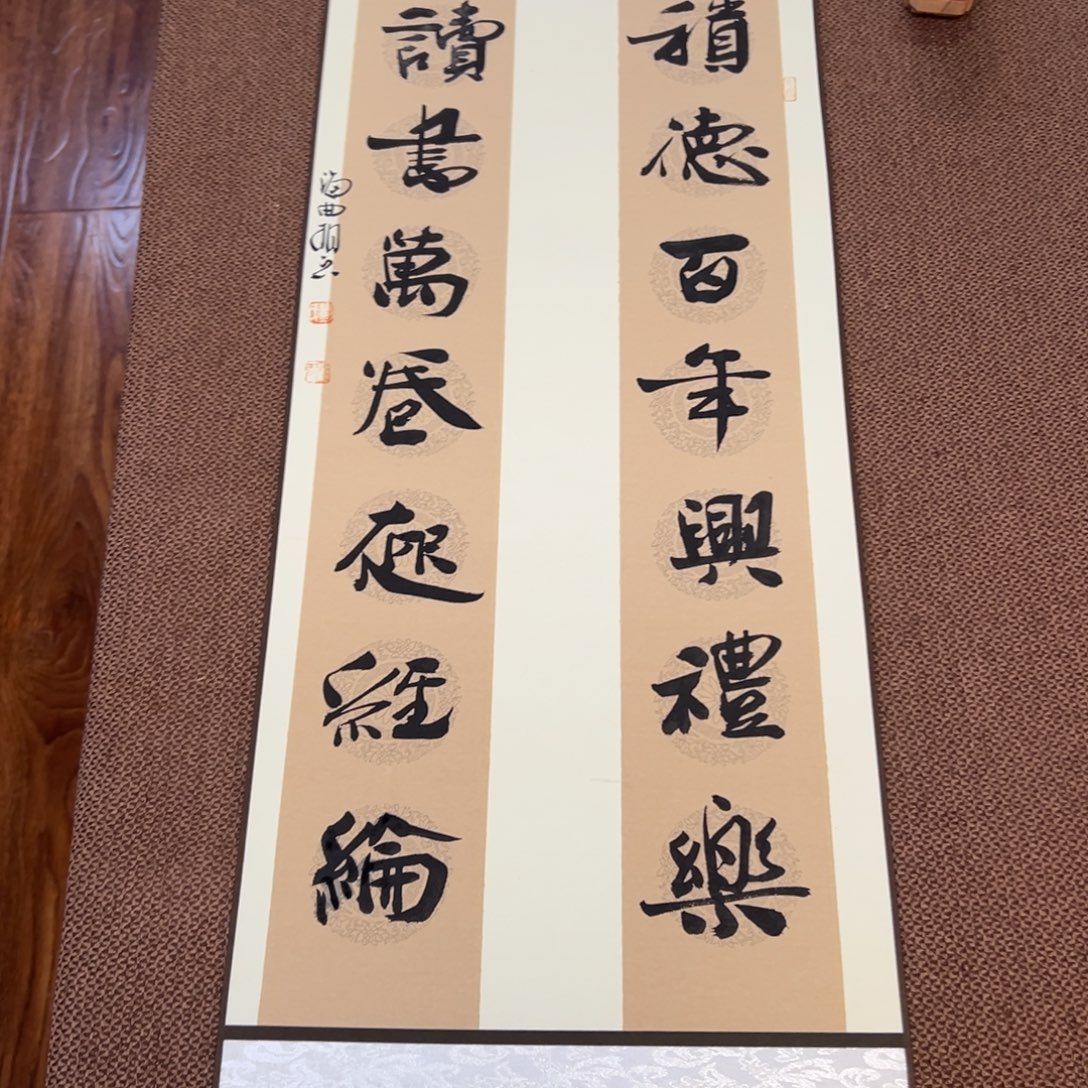 積德百年興禮樂
讀書萬卷極經綸